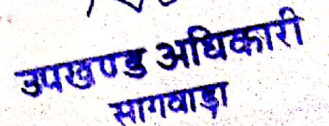 उपखण्ड अधिकारी
सागवाडा